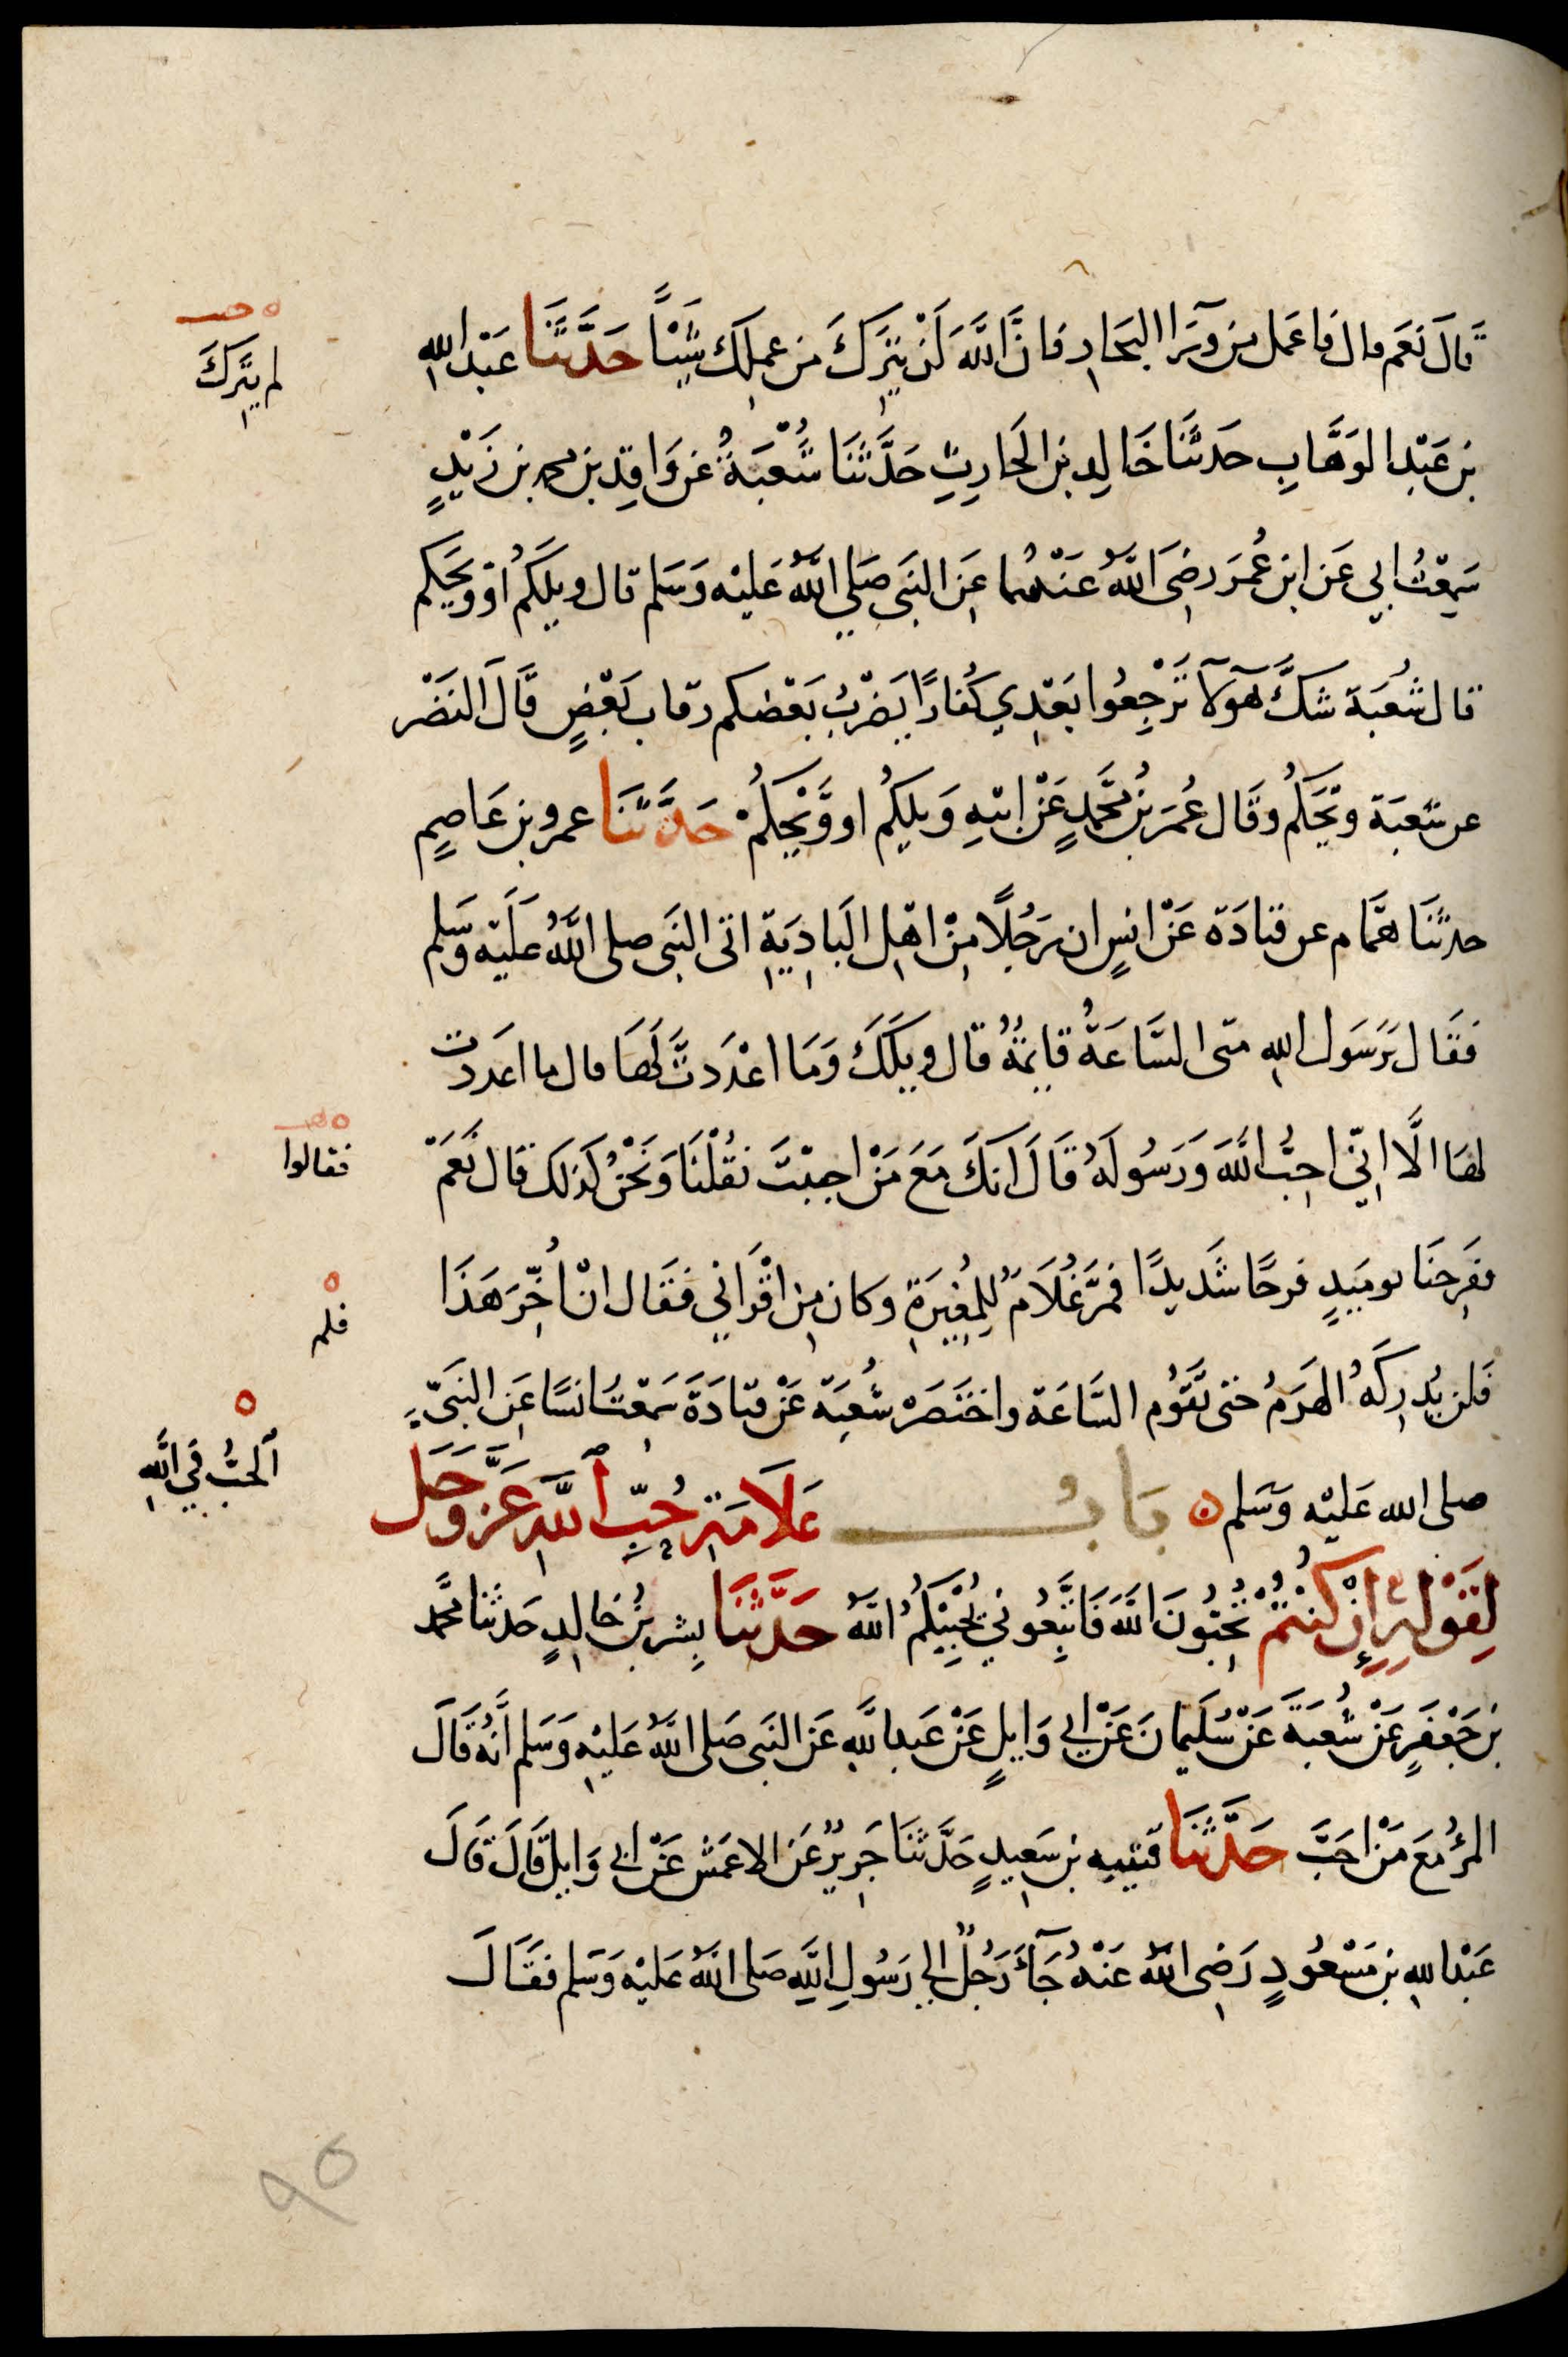 قَالَ نَعَم قال فَاعَمل من وَرَآ البحَارِ فانَّ اللَّهَ لَنْ يَتِرَكَ من عملِكَ شَيْئاً حَدَّثَنَا عَبْد اللهِ
لم يَتِرَكَ
بن عَبْدِ الوَهَّابِ حَدثنَا خَالِد بن الحَارِثِ حَدَّثَنَا شُعْبَةُ عَن وَاقِدِ بن محمد بن زَيْدٍ
سَمِعْتُ ابي عَن ابن عُمَر رضِىَ اللَّهُ عَنْهُما عَنِ النبَى صَلي اللَّهُ عَليْه وَسَلم قال ويلَكمُ اوْ وَيحَكم
قال شُعبَة شكَّ هوَ لآ تَرْجِعُوا بَعْدِي كُفارًا يَضْربُ بَعْضكم رقاب بَعْضٍ قَالَ النَضْر
عن شعبَة وَيْحَكمُ وقَال عُمَر بنُ مُحَّمدٍ عَنْ ابيهِ وَيلكِمُ او وَّيْحَكُمْ حَدَّثَنَا عمرو بن عَاصِمٍ
حدثنَا همَّام عن قتادَة عَنْ انسٍ ان رَجُلًا مِنْ اهلِ البَادِيَةِ اتى النبَى صلى اللَّهُ عَلَيْه وَسَلم
فقَال يَرَسَول اللهِ متى السَّاعَةُ قايِمَةٌ قال ويْلَكَ وَمَا اعْدَدتَّ لَهَا قال ما اعَددت
لهَا الَّا انّي احِبُّ اللَّهَ وَرَسُولَهُ قَالَ انكَ مَعَ مَنْ احببْتَ نقُلْنَا وَنَحْنُ كَذلك قال نَعَمْ
فقالوا
ففَرِحنَا يوميَدٍ فرحًا شَدِيدًا فمَرَّ غُلَامٌ لِلمُغيرَةِ وكان مِن اقْرَاني فقَال انْ اُخِّرَ هَذَا
فلم
فَلن يُدرِكَهُ الهرَمُ حَتى تقَوُم السَّاعَة واختَصَرهْ شُعبَة عَنْ قتادَةَ سَمِعْتُ انسًا عَنِ النبَىّ
صلى الله عَليْه وَسَلم ه بَابُ عَلَامَةِ حُبِّ اللَّهِ عَزَّ وَجَل
الحَبُّ فِي اللَّهِ
لِقَوْلِهِ إِنْ كُنْتُمْ تُحِبُّونَ اللَّهَ فَاتَّبِعُوني يُحْبِبْكمُ اللَّهُ حَدَّثَنَا بِشر بنُ خالدٍ حَدثنا مُحَمَّد
بن جَعْفَرٍ عَنْ شُعْبَةَ عَنْ سُلَيمانَ عَنْ ابي وَايلٍ عَنْ عَبدِ اللَّهِ عَن النبَى صَلى اللَّهُ عَليْهِ وَسَلم اَنَّهُ قَالَ
المرْءُ مَعَ مَنْ احَبَّ حَدَّثَنَا قتيبه بن سَعِيدٍ حَدَّثنَا جَرِيرٌ عَن الاعمَش عَنْ ابي وَايلٍ قَالَ قَالَ
عَبْد اللهِ بن مَسْعُودٍ رَضِى اللَّهُ عَنْهُ جَآءَ رَجُلٌ الي رَسُولِ اللَّهِ صَلى اللَّهُ عَليْه وَسَلم فقَالَ
90